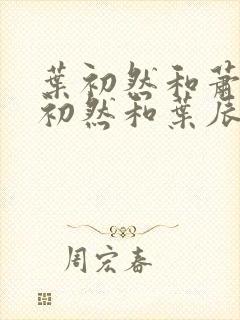 葉初然和蕭
初然和葉辰
周宏春